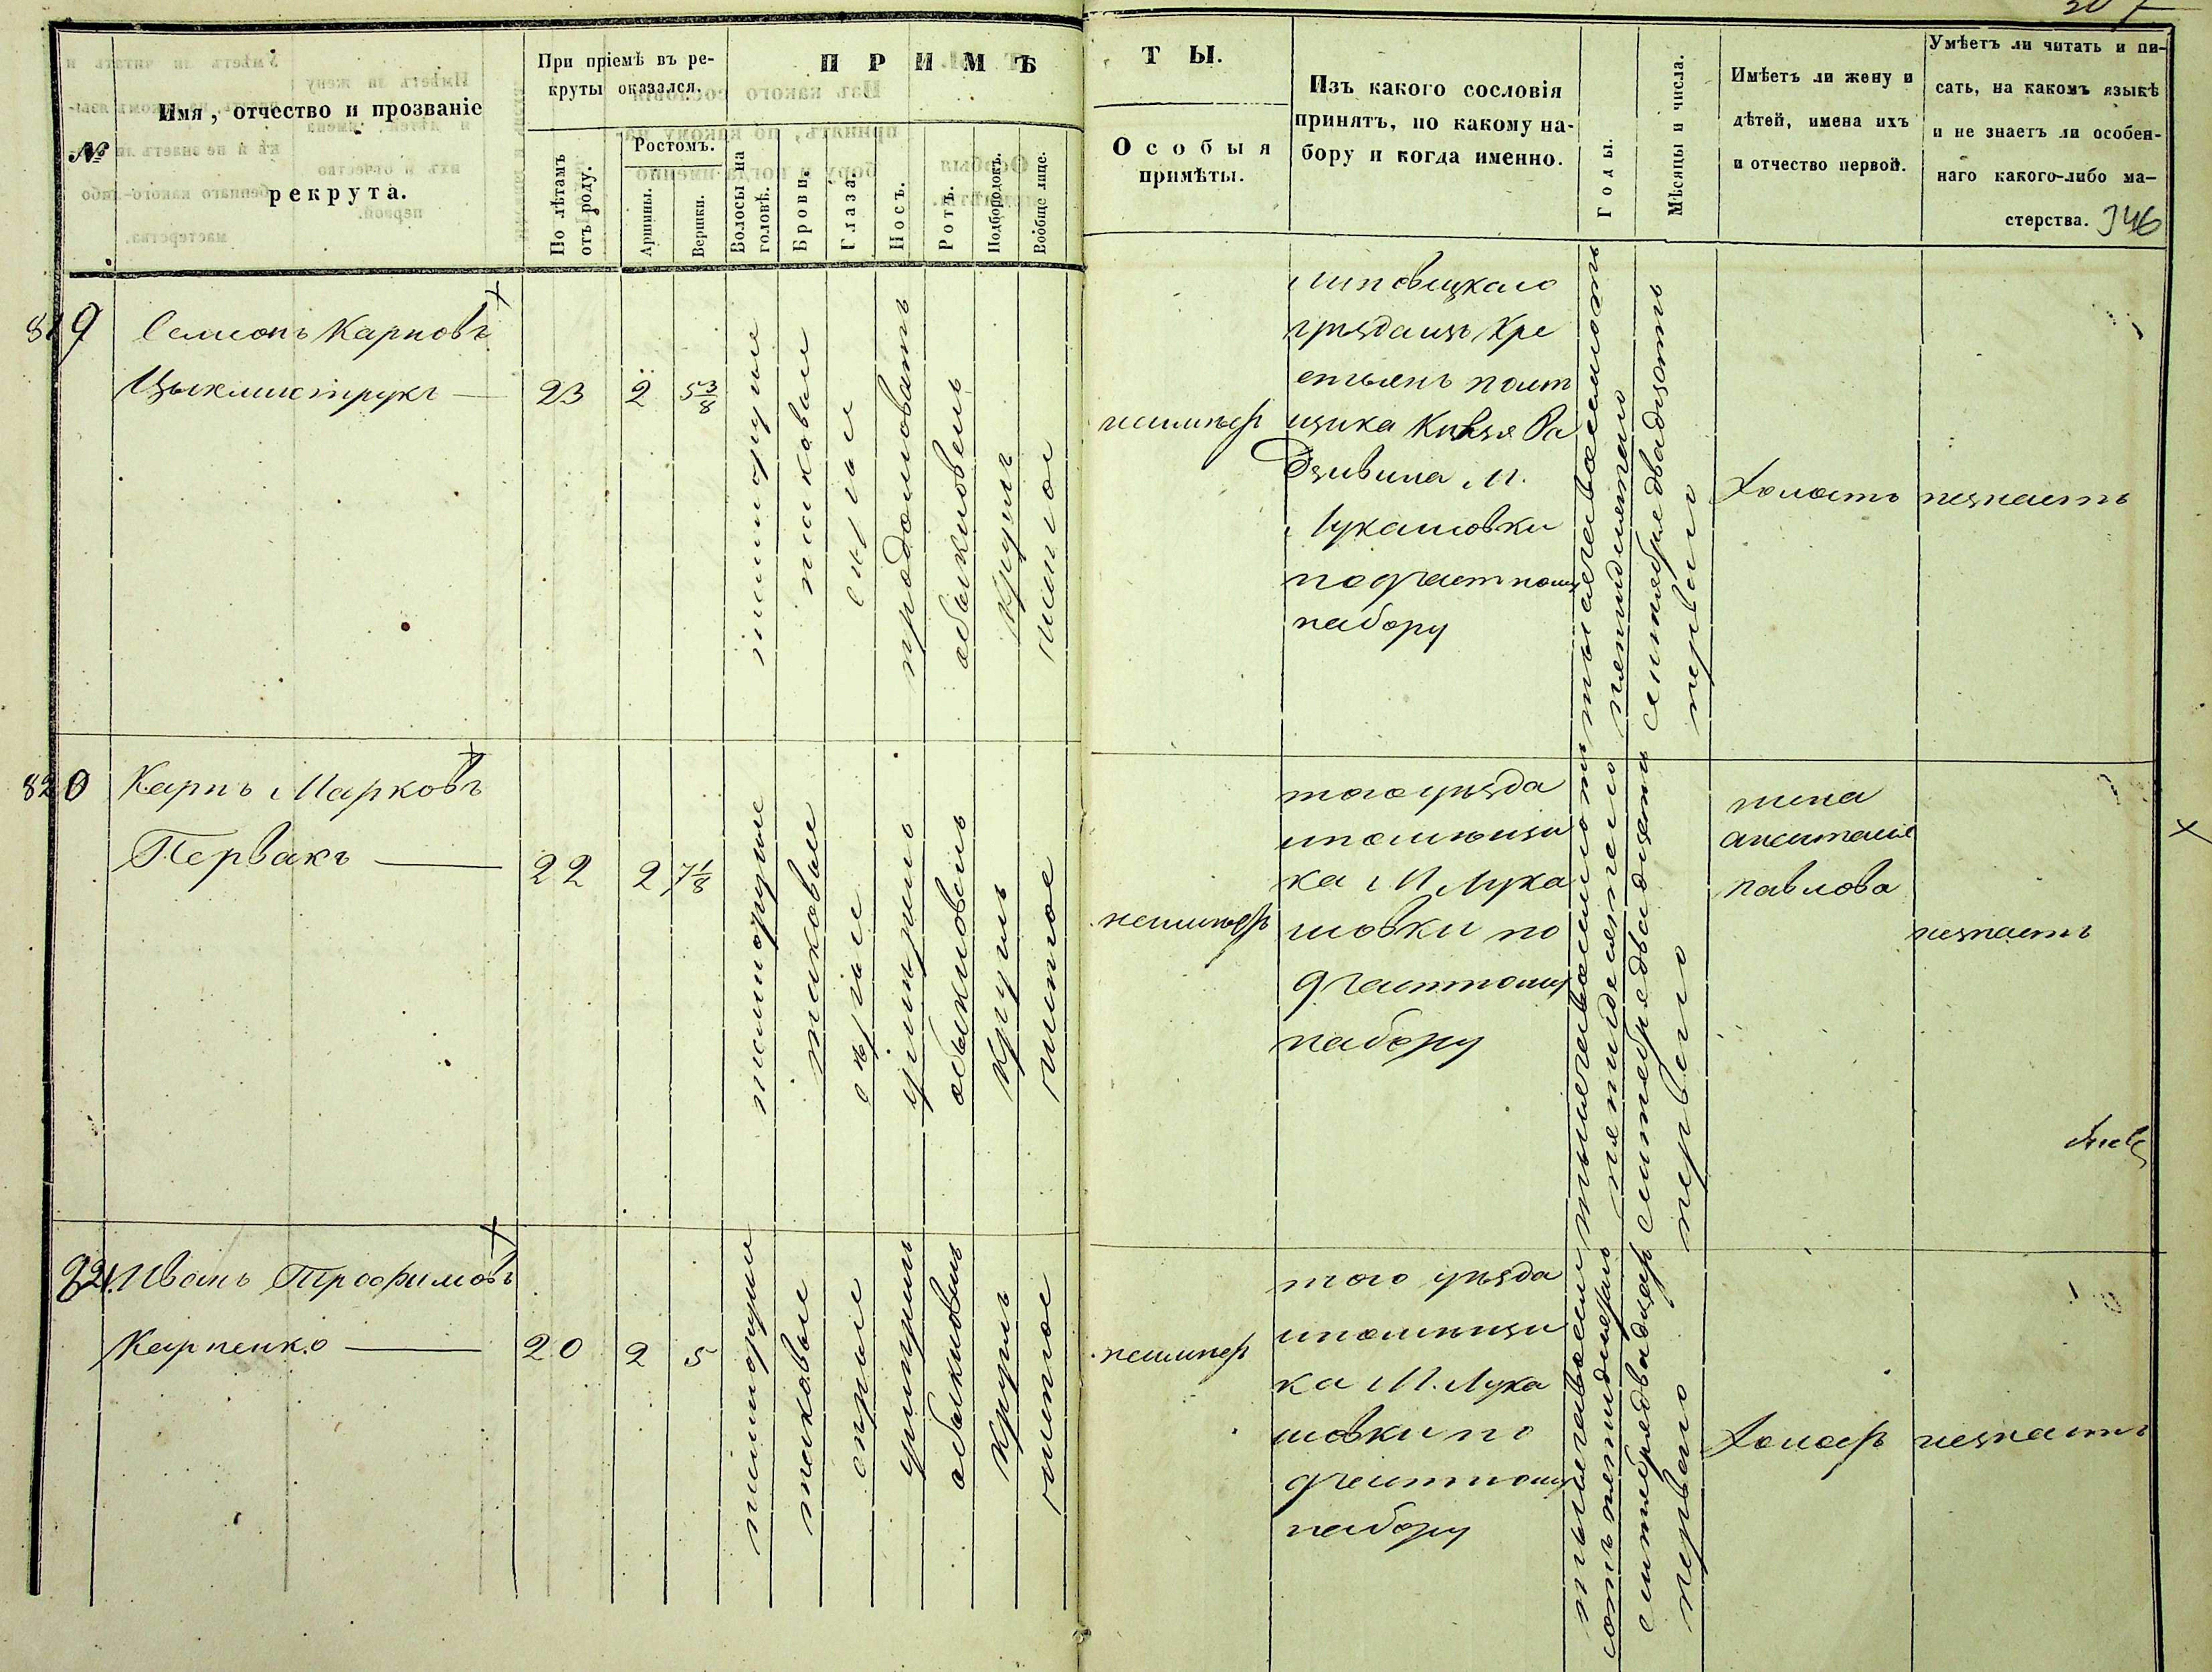 207
№
Имя, отчество и прозваніе
рекрута.
При пріемѣ въ ре-
круты оказался.
По лѣтамъ
отъ роду.
Ростомъ.
Аршины.
Вершки.
ПРИМѢ
Волосы на
головѣ.
Брови.
Глаза.
Носъ.
Ротъ.
Подбородокъ.
Вообще лице.
ТЫ.
Особыя
примѣты.
Изъ какого сословія
принятъ, по какому на-
бору и когда именно.
Годы.
Мѣсяцы и числа.
Имѣетъ ли жену и
дѣтей, имена ихъ
и отчество первой.
Умѣетъ ли читать и пи-
сать, на какомъ языкѣ
и не знаетъ ли особен-
наго какого-либо ма-
стерства. 346
819
Семионъ Карповъ
Цыклиструкъ
23
2
5 3/8
темнорусые
таковыи
сѣрые
продолговатъ
обыкновень
круглъ
чистое
неимѣетъ
Липовецкаго
уѣзда изъ Кре
стьянъ помѣ
щика Князя Ра
Дзивила М.
Лукашовки
по 9 частному
набору
тысяча восемьсотъ
пятидесятаго
сентября двадцать
перваго
Холостъ
незнаетъ
820
Карпъ Марковъ
Первакъ
22
2
7 1/8
темнорусые
таковые
сѣрые
умѣренъ
обыкновень
круглъ
чистое
неимѣетъ
того уѣзда
и помѣщи
ка М. Лука
шовки по
9 частному
набору
тысяча восемьсотъ
пятидесятаго
сентября двадцать
перваго
жена
Павлова
незнаетъ
821.
Иванъ Трофимовъ
Карпенко
20
2
5
темнорусые
таковые
сѣрые
умѣренъ
обыкновень
круглъ
чистое
неимѣетъ
того уѣзда
и помѣщи
ка М. Лука
шовки по
9 частному
набору
тысяча восемь
сотъ пятидесятаго
сентября двадцать
перваго
Холостъ
незнаетъ